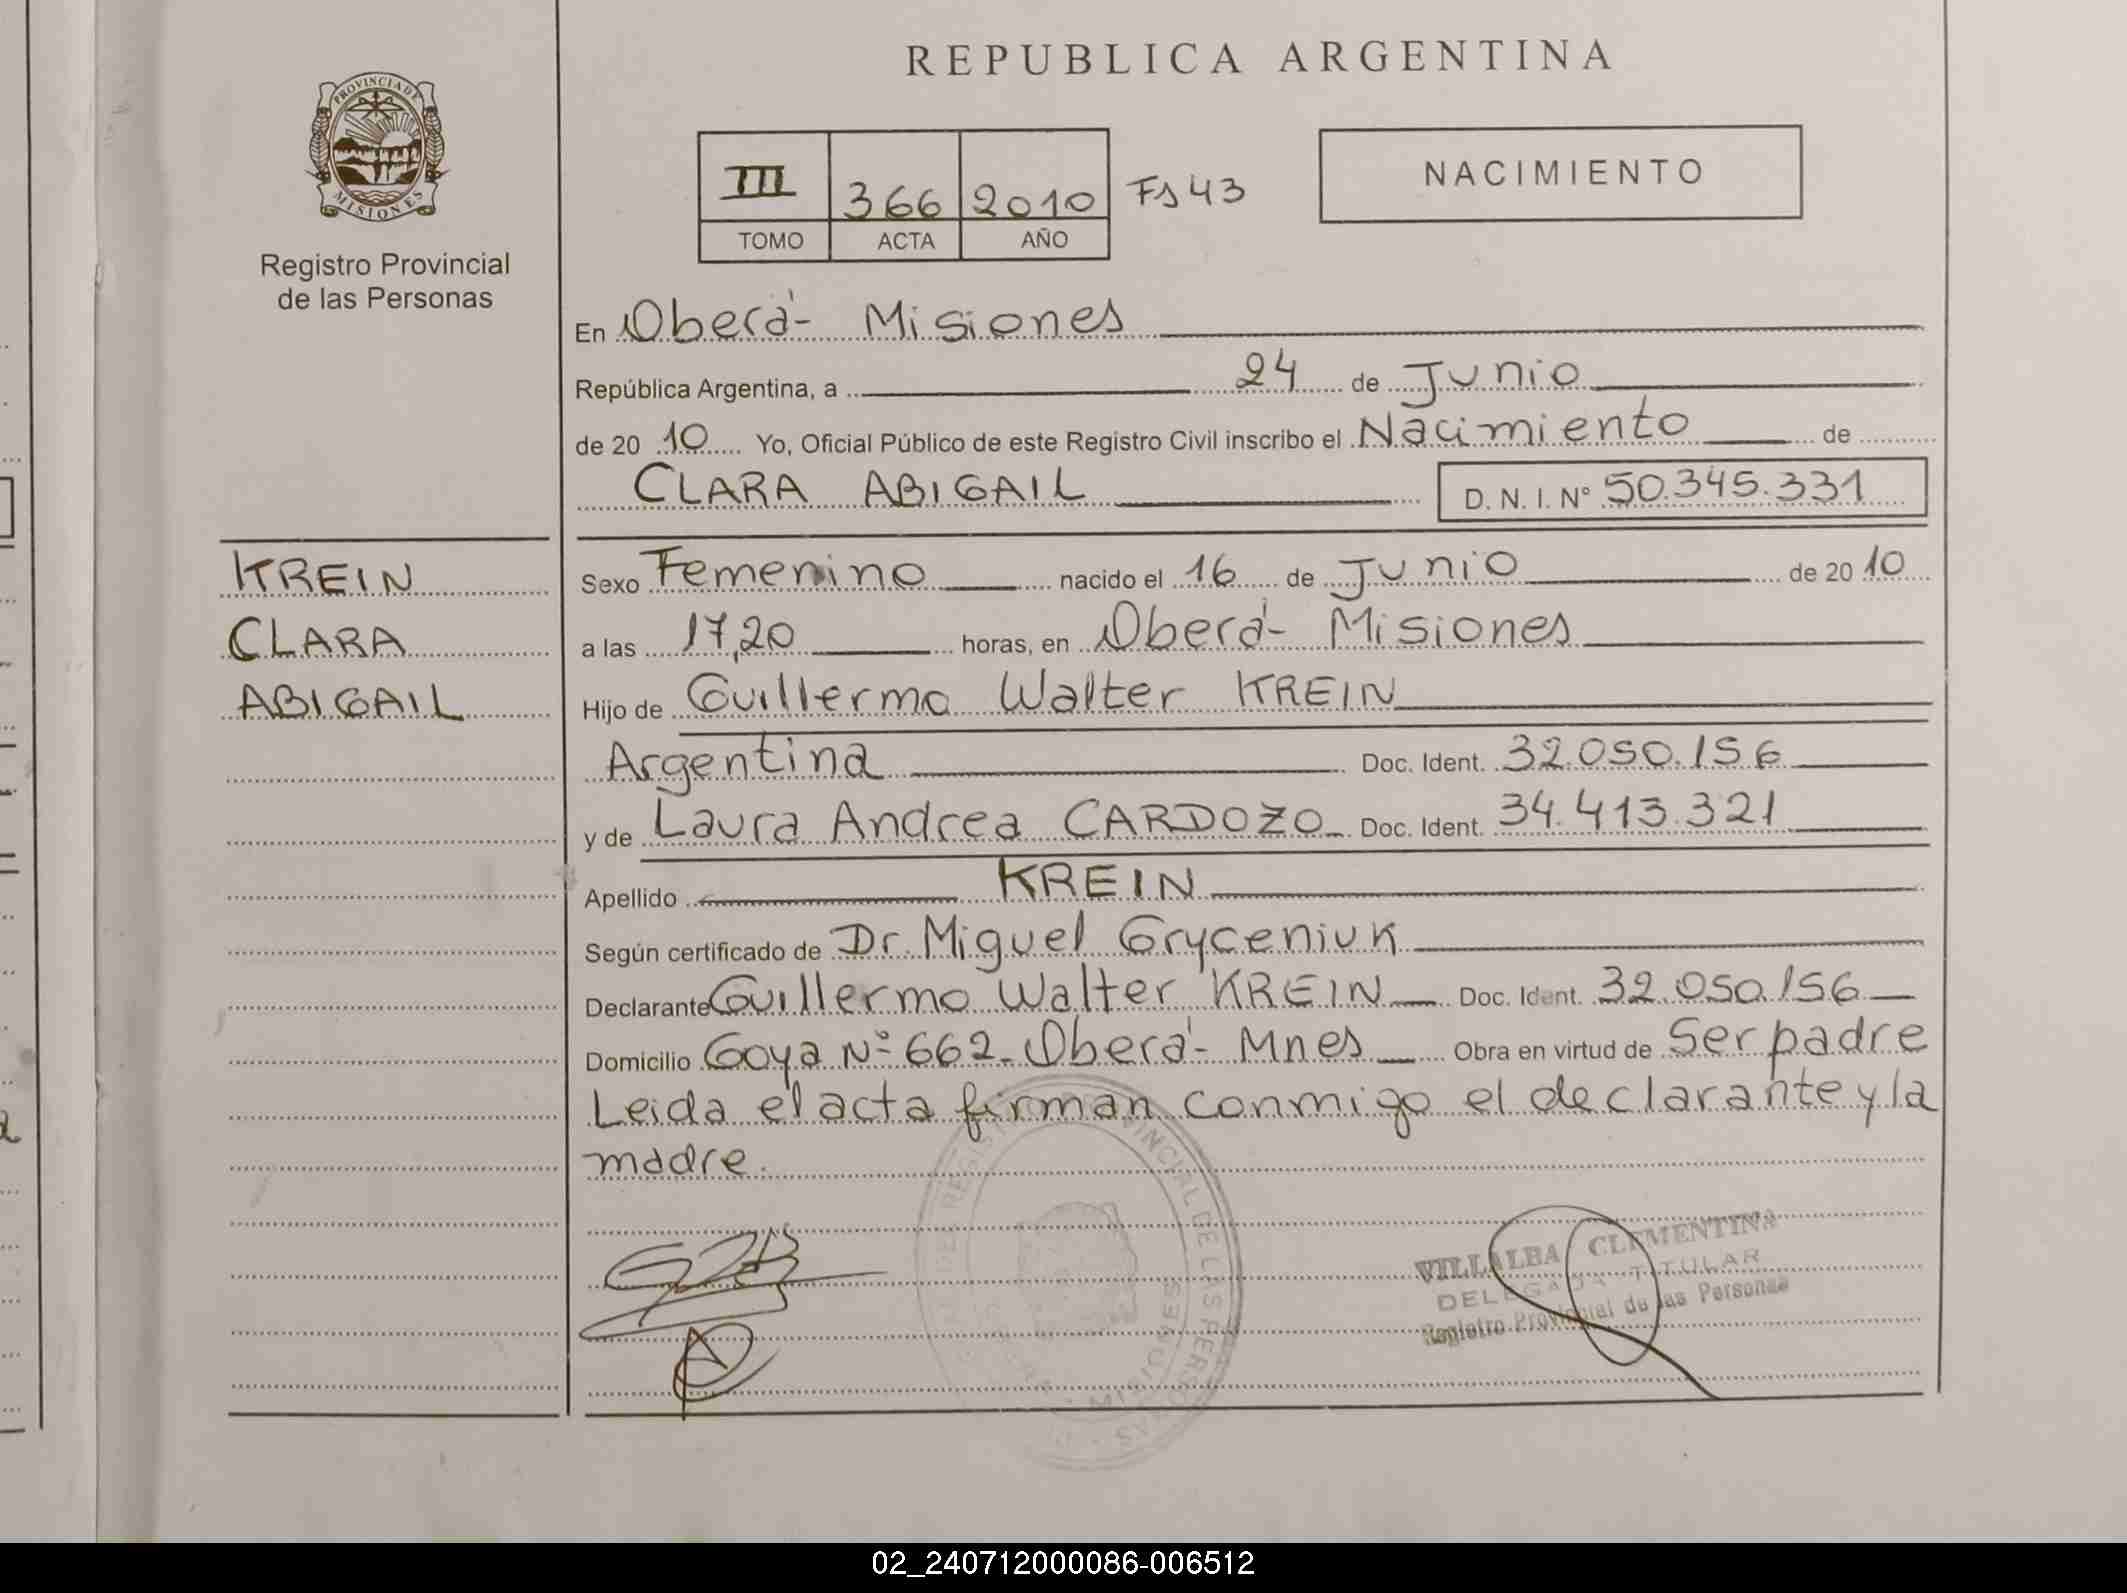 REPUBLICA ARGENTINA
PROVINCIA DE
MISIONES
Registro Provincial
de las Personas
III 366 2010 Fs 43
TOMO ACTA AÑO
NACIMIENTO
En Oberá- Misiones
República Argentina, a 24 de Junio
de 20 10 Yo, Oficial Público de este Registro Civil inscribo el Nacimiento de
CLARA ABIGAIL D. N. I. N° 50.345.331
KREIN
CLARA
ABIGAIL
Sexo Femenino nacido el 16 de Junio de 20 10
a las 17,20 horas, en Oberá- Misiones
Hijo de Guillermo Walter KREIN
Argentina Doc. Ident. 32.050.156
y de Laura Andrea CARDOZO Doc. Ident. 34.413.321
Apellido KREIN
Según certificado de Dr. Miguel Gryceniuk
Declarante Guillermo Walter KREIN Doc. Ident. 32.050.156
Domicilio Goya N° 662- Oberá- Mnes Obra en virtud de Ser padre
Leida el acta firman conmigo el declarante y la
madre.
VILLALBA CLEMENTINA
DELEGADA TITULAR
Registro Provincial de las Personas
MISIONES
02_240712000086-006512